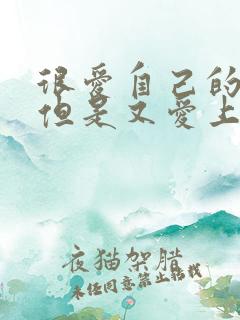 很爱自己的
但是又爱上
夜猫架腊
未经同意禁止转载